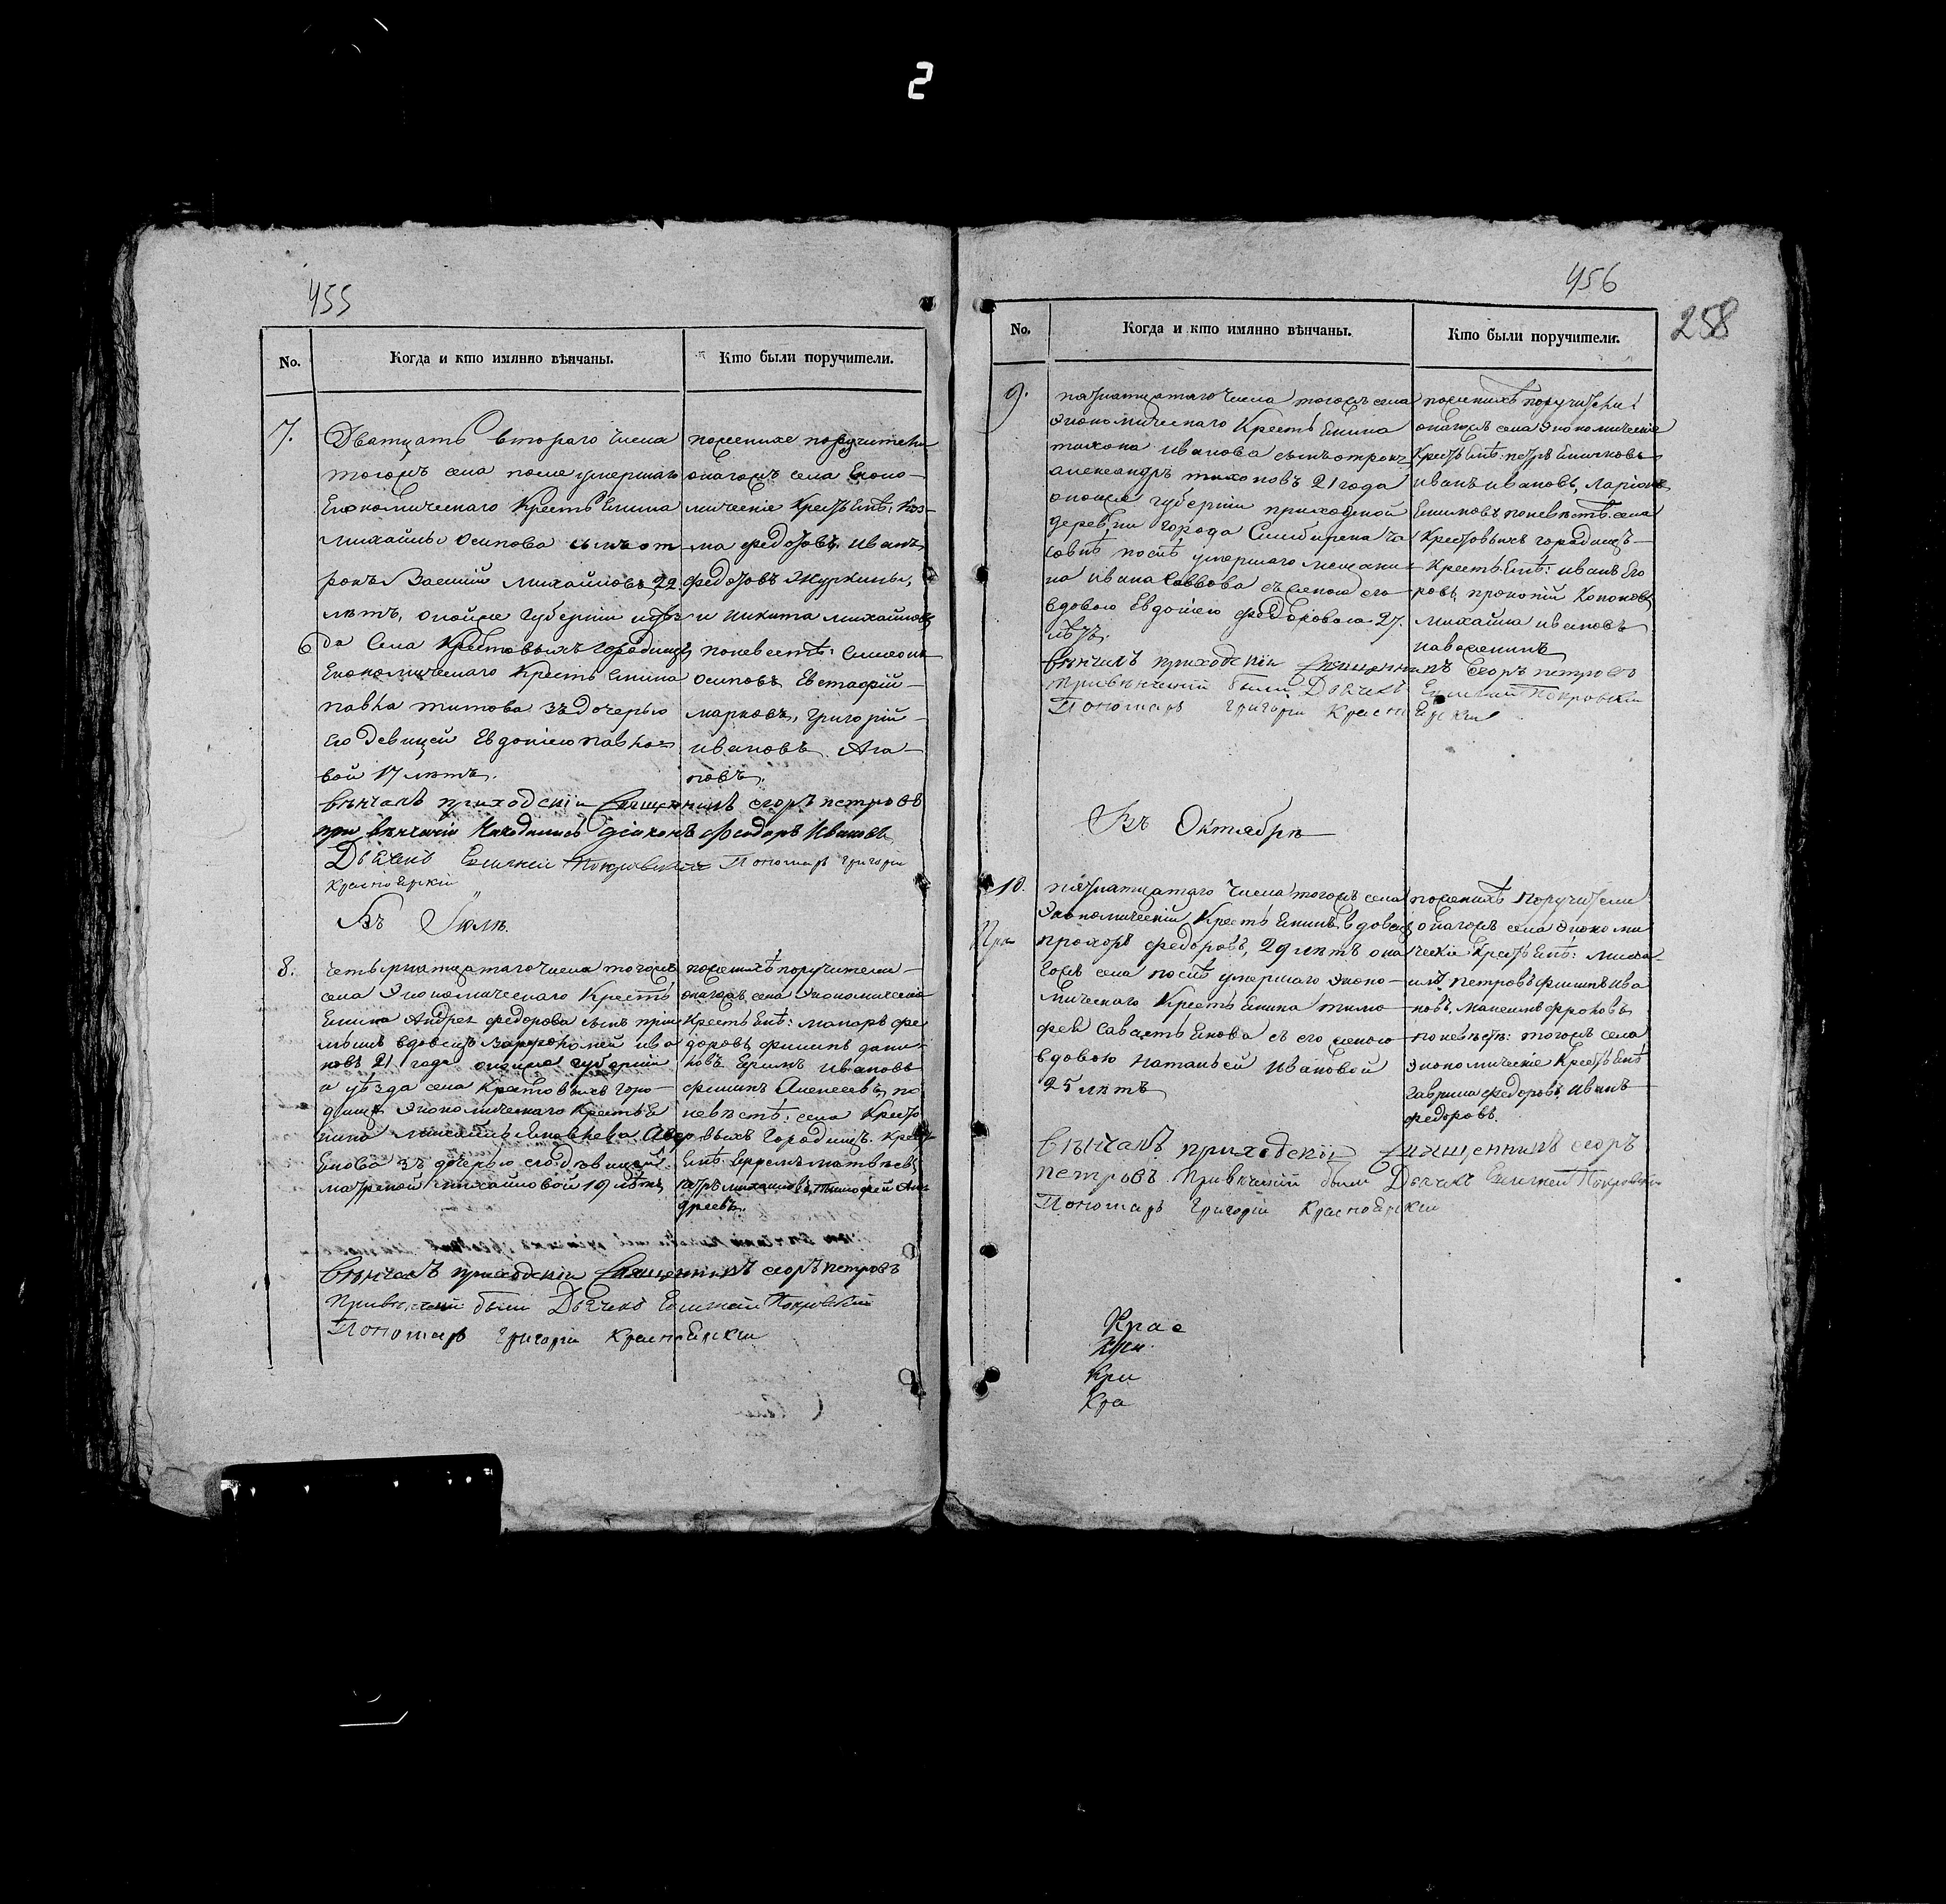 2
455
No.
Когда и кто имянно вѣнчаны.
Кто были поручители.
7.
Дватцать втораго числа
тогожъ села после умершаго
Економическаго Крестьенина
михайлы осипова сынъ от
рокъ василий михайловъ 22.
лѣтъ, опойже губернии иуез
да села Крестовыхъ городищъ
Економическаго Крестьенина
павла титова здочерью
его девицей Евдокiею павло=
вой 17 лѣтъ.
поженихе поручители
онагожъ села Еконо-
мическiе Крестьенѣ: Коз-
ма федотовъ, иванъ
федотовъ Журкины,
и никита михайловъ
поневестѣ: симеонъ
осиповъ Евстафiй
марковъ, григорiй
ивановъ Ага-
повъ.
вѣнчалъ приходскiи священникъ егоръ петровъ
при венчанiи находились дiаконъ федоръ Ивановъ
Дьячекъ Елисей Покровский Пономарь григори
Красноярскiй
Въ Iюлѣ.
8.
четырнатцатаго числа тогожъ
села Экономическаго Кресть
Енина Андрея федорова сынъ прие
мышъ вдовецъ варфоломей ива
новъ 21 года опойже губернiи
и уѣзда села Крестовыхъ горо-
дищъ Экономическаго Крестье
нина михайлы Яковлева Авер
Енова зъ дочерью его дѣвицей
матреной михайловой 19 лѣтъ,
поженихѣ поручители
онагожъ села Экономическiе
Крестьенѣ: макаръ фе
доровъ филипъ дани-
ловъ Ефимъ ивановъ
филипъ Алексеевъ, по
невѣстѣ: села Кресто
выхъ городищъ. Кресть
Енѣ Ефремъ матвѣевъ
петръ михайловъ, тимофей Ан
дреевъ.
вѣнчалъ приходскiи священникъ егоръ петровъ
Привенчаний были Дьячекъ Елисей Покровский
Пономарь григори Красноярскiи
456
258
No.
Когда и кто имянно вѣнчаны.
Кто были поручители.
9.
пятнатцатаго числа тогожъ села
Экономическаго Крестьенина
тихона иванова сынъ отрокъ
александръ тихоновъ 21 года
опойже губернiи приходской
деревни города Симбирска
послѣ умершаго мещани
на ивана Саввова съженою его
вдовою Евдокiею федоровою 27.
лѣтъ.
поженихѣ поручители:
онагожъ села Экономическiе
Крестьенѣ: петръ
иванъ ивановъ, ларiонъ
Ефимовъ поневѣстѣ: села
Крестовыхъ городищъ
Крестьенѣ: иванъ Его
ровъ прокопiй Кононовъ
михайла ивановъ
вѣнчалъ приходскiи священникъ Егоръ петровъ
Привѣнчаний были Дьячекъ Елисей Покровскiи
Пономарь григори Красноярскiи
Въ Октябрѣ
10.
пятнатцатаго числа тогожъ села
Экономическiй Крестьенинъ вдовецъ
прохоръ федоровъ, 29 лѣтъ она
гожъ села послѣ умершаго Эконо-
мическаго Крестьенина тимо
фея Савастьенова съ его женою
вдовою натальей ивановой
25 лѣтъ
поженихѣ Поручители
онагожъ села Экономи
ческiе Крестьенѣ: миха-
илъ петровъ филипъ ива
новъ, максимъ фроловъ
поневѣстѣ: тогожъ села
Экономическiе Крестьенѣ
гаврила федоровъ, иванъ
федоровъ.
вѣнчалъ приходскiи священникъ егоръ
петровъ Привѣнчаний были Дьячекъ Елисей Покровскiи
Пономарь григорiи Красноярскiи
Крас
Кри
Кра